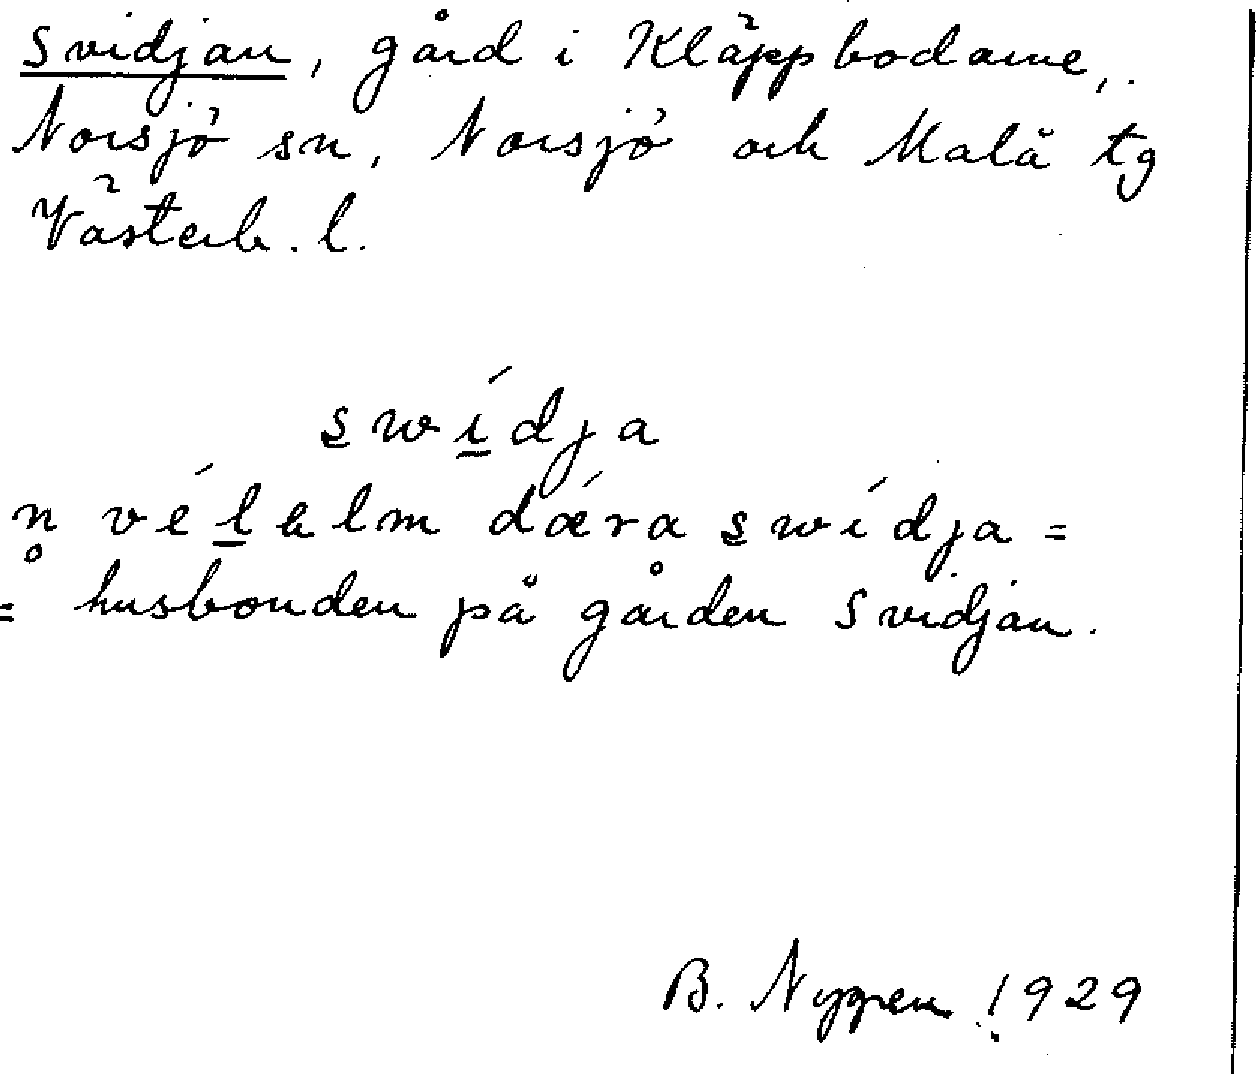 Svidjan, gård i Kläppbodarne,
Norsjö sn, Norsjö och Malå tg
Västerb. l.
swídja
n vélhlm dǽra swídja =
= husbonden på gården Svidjan.
B. Nygren 1929